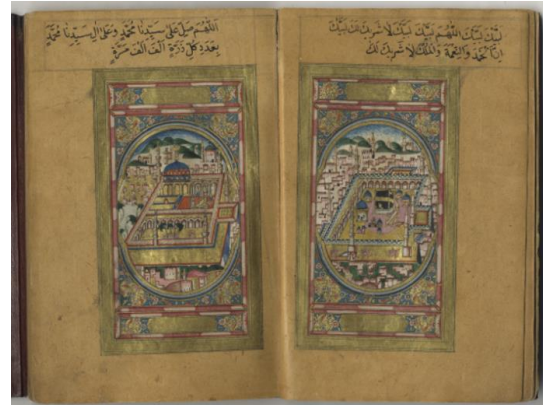 لَبَّيْكَ لَبَّيْكَ اَللّٰهُمَّ لَبَّيْكَ لَبَّيْكَ لَا شَرِيكَ لَكَ لَبَّيْكَ
اِنَّ الْحَمْدَ وَالنِّعْمَةَ وَالْمُلْكَ لَا شَرِيكَ لَكَ
اَللّٰهُمَّ صَلِّ عَلٰى سَيِّدِنَا مُحَمَّدٍ وَعَلٰى اٰلِ سَيِّدِنَا مُحَمَّدٍ
بِعَدَدِ كُلِّ ذَرَّةٍ اَلْفَ اَلْفَ مَرَّةٍ